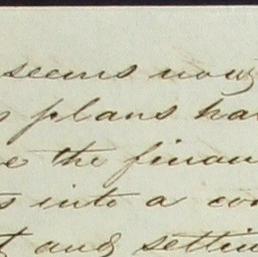 seems now
plans ha
the finan
into a co
and settin